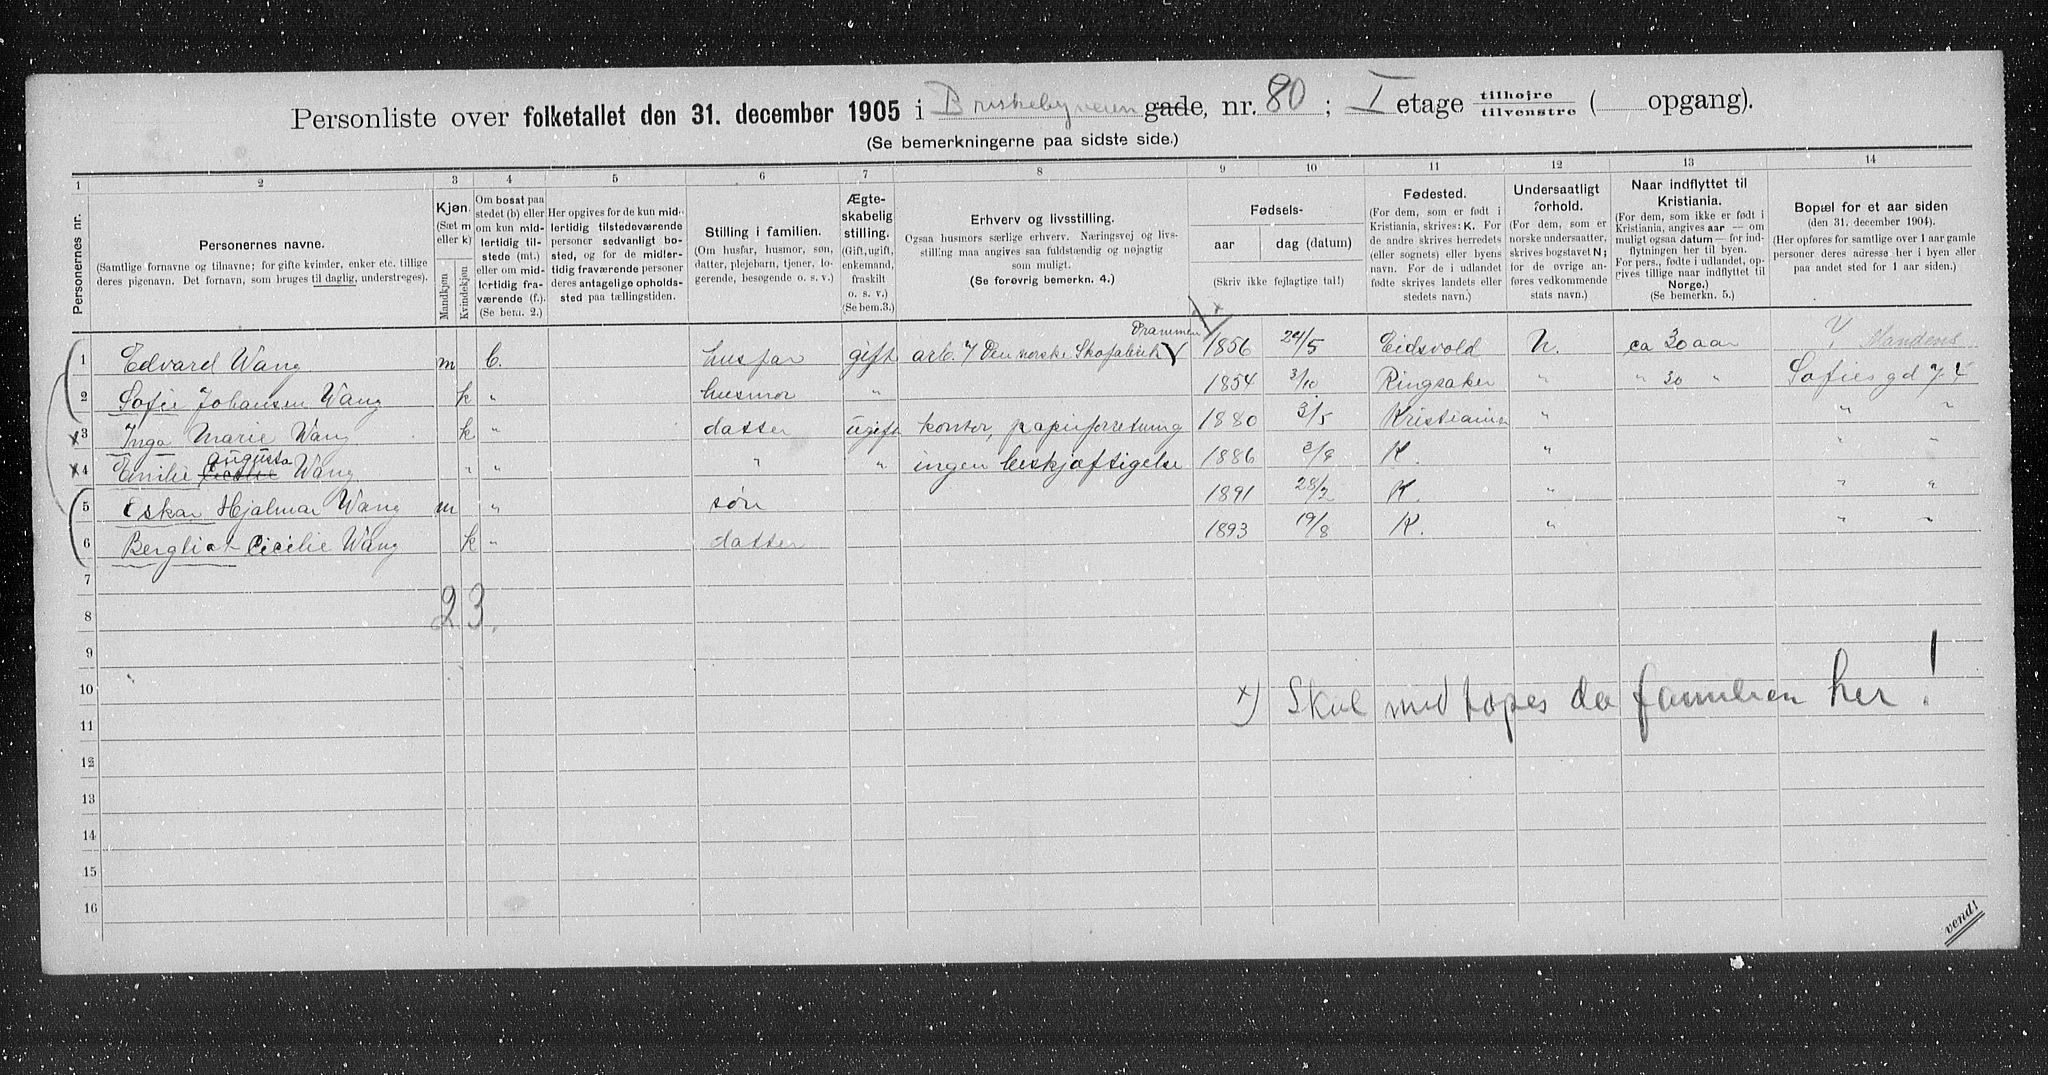 Personliste over folketallet den 31. december 1905 i Briskebyveien gade, nr. 80 ; I etage tilhøjre tilvenstre ( opgang).
(Se bemerkningerne paa sidste side.)
1 2 3 4 5 6 7 8 9 10 11 12 13 14
Personernes nr.
Personernes navne.
(Samtlige fornavne og tilnavne; for gifte kvinder, enker etc. tillige
deres pigenavn. Det fornavn, som bruges til daglig, understreges).
Kjøn.
(Sæt m
eller k)
Mandkjøn
Kvindekjøn
Om bosat paa
stedet (b) eller
om kun mid-
lertidig til-
stede (mt.)
eller om mid-
lertidig fra-
værende (f.).
(Se bem. 2.)
Her opgives for de kun mid-
lertidig tilstedeværende
personer sedvanligt bo-
sted, og for de midler-
tidig fraværende personer
deres antagelige opholds-
sted paa tællingstiden.
Stilling i familien.
(Om husfar, husmor, søn,
datter, plejebarn, tjener, lo-
gerende, besøgende o. s. v.).
Ægte-
skabelig
stilling.
(Gift, ugift,
enkemand,
fraskilt
o. s. v.)
(Se bem.3.)
Erhverv og livsstilling.
Ogsaa husmors særlige erhverv. Næringsvej og livs-
stilling maa angives saa fuldstændig og nøjagtig
som muligt.
(Se forøvrig bemerkn. 4.)
Fødsels-
aar
dag (datum)
(Skriv ikke fejlagtige tal!)
Fødested.
(For dem, som er født i
Kristiania, skrives: K. For
de andre skrives herredets
(eller sognets) eller byens
navn. For de i udlandet
fødte skrives landets eller
stedets navn.)
Undersaatligt
forhold.
(For dem, som er
norske undersaatter,
skrives bogstavet N;
for de øvrige an-
føres vedkommende
stats navn.)
Naar indflyttet til
Kristiania.
(For dem, som ikke er født i
Kristiania, angives aar — om
muligt ogsaa datum — for ind-
flytningen her til byen.
For pers., fødte i udlandet, op-
gives tillige naar indflyttet til
Norge.)
(Se bemerkn. 5.)
Bopæl for et aar siden
(den 31. december 1904).
(Her opføres for samtlige over 1 aar gamle
personer deres adresse her i byen eller
paa andet sted for 1 aar siden.)
Drammen
1 Edvard Wang m b. husfar gift arb. v/ Den norske Skofabrik 1856 24/5 Eidsvold N. ca 30 aar
2 Sofie Johansen Wang k " husmor " 1854 3/10 Ringsaker " " 30 " Sofies gd 74
x3 Inga Marie Wang k " datter ugift kontor, papirforretning 1880 3/5 Kristiania " " "
augusta
x4 Emilie Cecilie Wang " " " " ingen beskjæftigelse 1886 K. " " "
5 Oskar Hjalmar Wang m " søn 1891 28/2 K. " " "
6 Bergliot Cicilie Wang k " datter 1893 19/8 K. " " "
7
2 3.
8
9
10
x) Skal medtages da familien her!
11
12
13
14
15
16
vend!